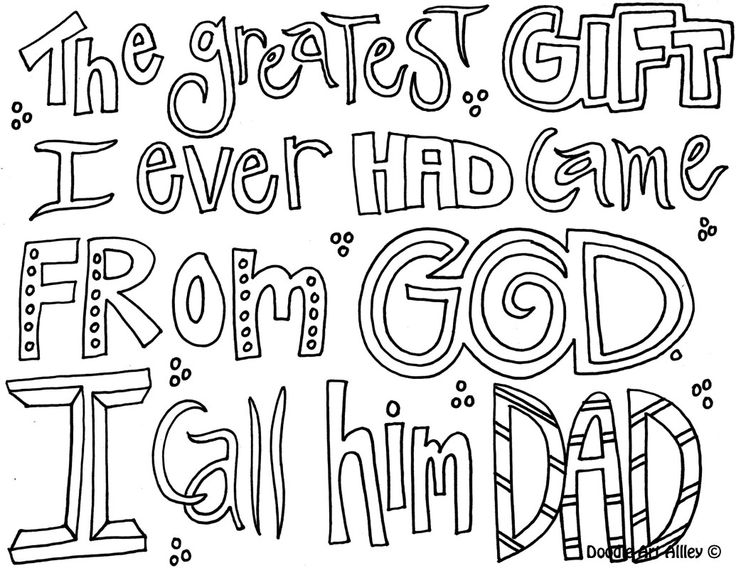 The greatest GIFT
I ever HAD Came
FROM GOD.
I Call him DAD
Doodle Art Allley ©